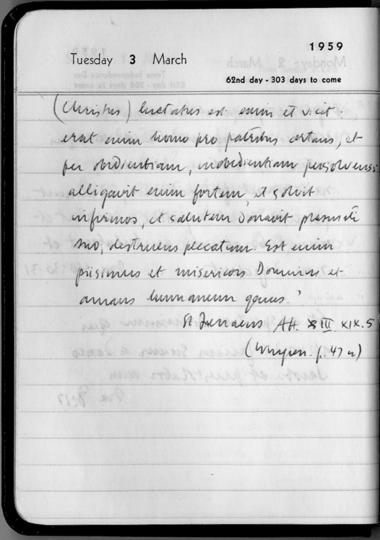 1959
Tuesday 3 March
62nd day - 303 days to come
(Christus) luctatus est enim et vicit
erat enim homo pro patribus certans, et
per obedientiam, inobedientiam persolvens
alligavit enim fortem, et solvit
infirmos, et salutem donavit plasmati
suo, destruens peccatum. Est enim
piissimus et misericors Dominus et
amans humanum genus.'
St Irenaeus AH. III XIX.5
(Wingren. p. 47 n)